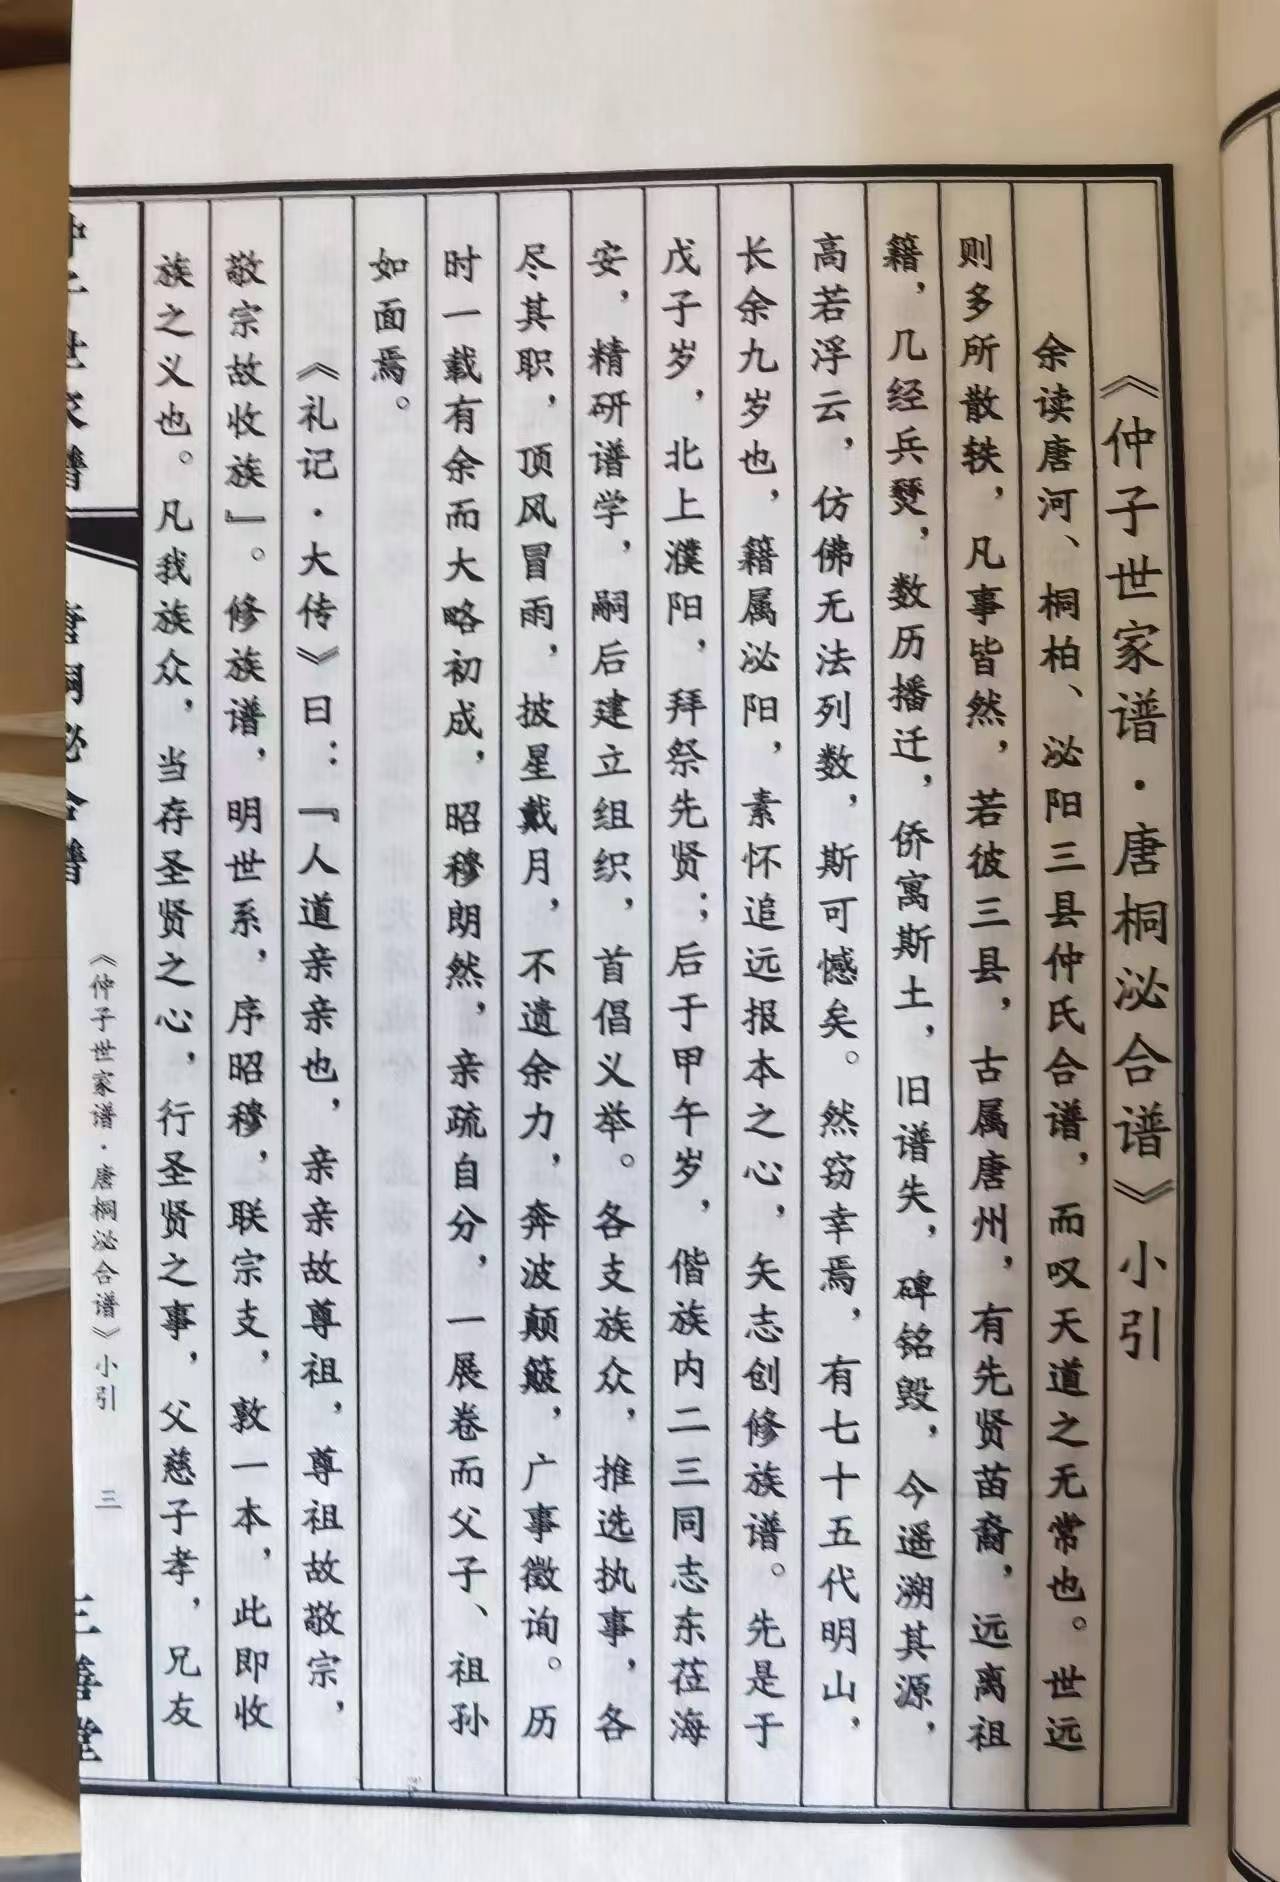 《仲子世家谱·唐桐泌合谱》小引
余读唐河、桐柏、泌阳三县仲氏合谱，而叹天道之无常也。世远
则多所散轶，凡事皆然，若彼三县，古属唐州，有先贤苗裔，远离祖
籍，几经兵燹，数历播迁，侨寓斯土，旧谱失，碑铭毁，今遥溯其源，
高若浮云，仿佛无法列数，斯可憾矣。然窃幸焉，有七十五代明山，
长余九岁也，籍属泌阳，素怀追远报本之心，矢志创修族谱。先是于
戊子岁，北上濮阳，拜祭先贤；后于甲午岁，偕族内二三同志东莅海
安，精研谱学，嗣后建立组织，首倡义举。各支族众，推选执事，各
尽其职，顶风冒雨，披星戴月，不遗余力，奔波颠簸，广事徵询。历
时一载有余而大略初成，昭穆朗然，亲疏自分，一展卷而父子、祖孙
如面焉。
《礼记·大传》曰：『人道亲亲也，亲亲故尊祖，尊祖故敬宗，
敬宗故收族』。修族谱，明世系，序昭穆，联宗支，敦一本，此即收
族之义也。凡我族众，当存圣贤之心，行圣贤之事，父慈子孝，兄友
仲子世家谱
唐桐泌合谱
《仲子世家谱·唐桐泌合谱》小引
三
三善堂